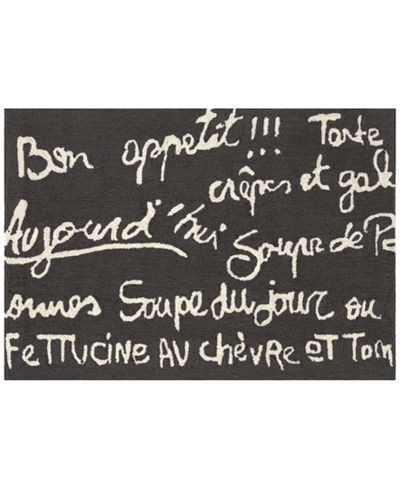 Bon appetit!!! Tarte
crêpes et gal
Aujourd'hui Soupe de Po
onnes Soupe du jour ou
FETTUCINE AU chèvRE eT Tom